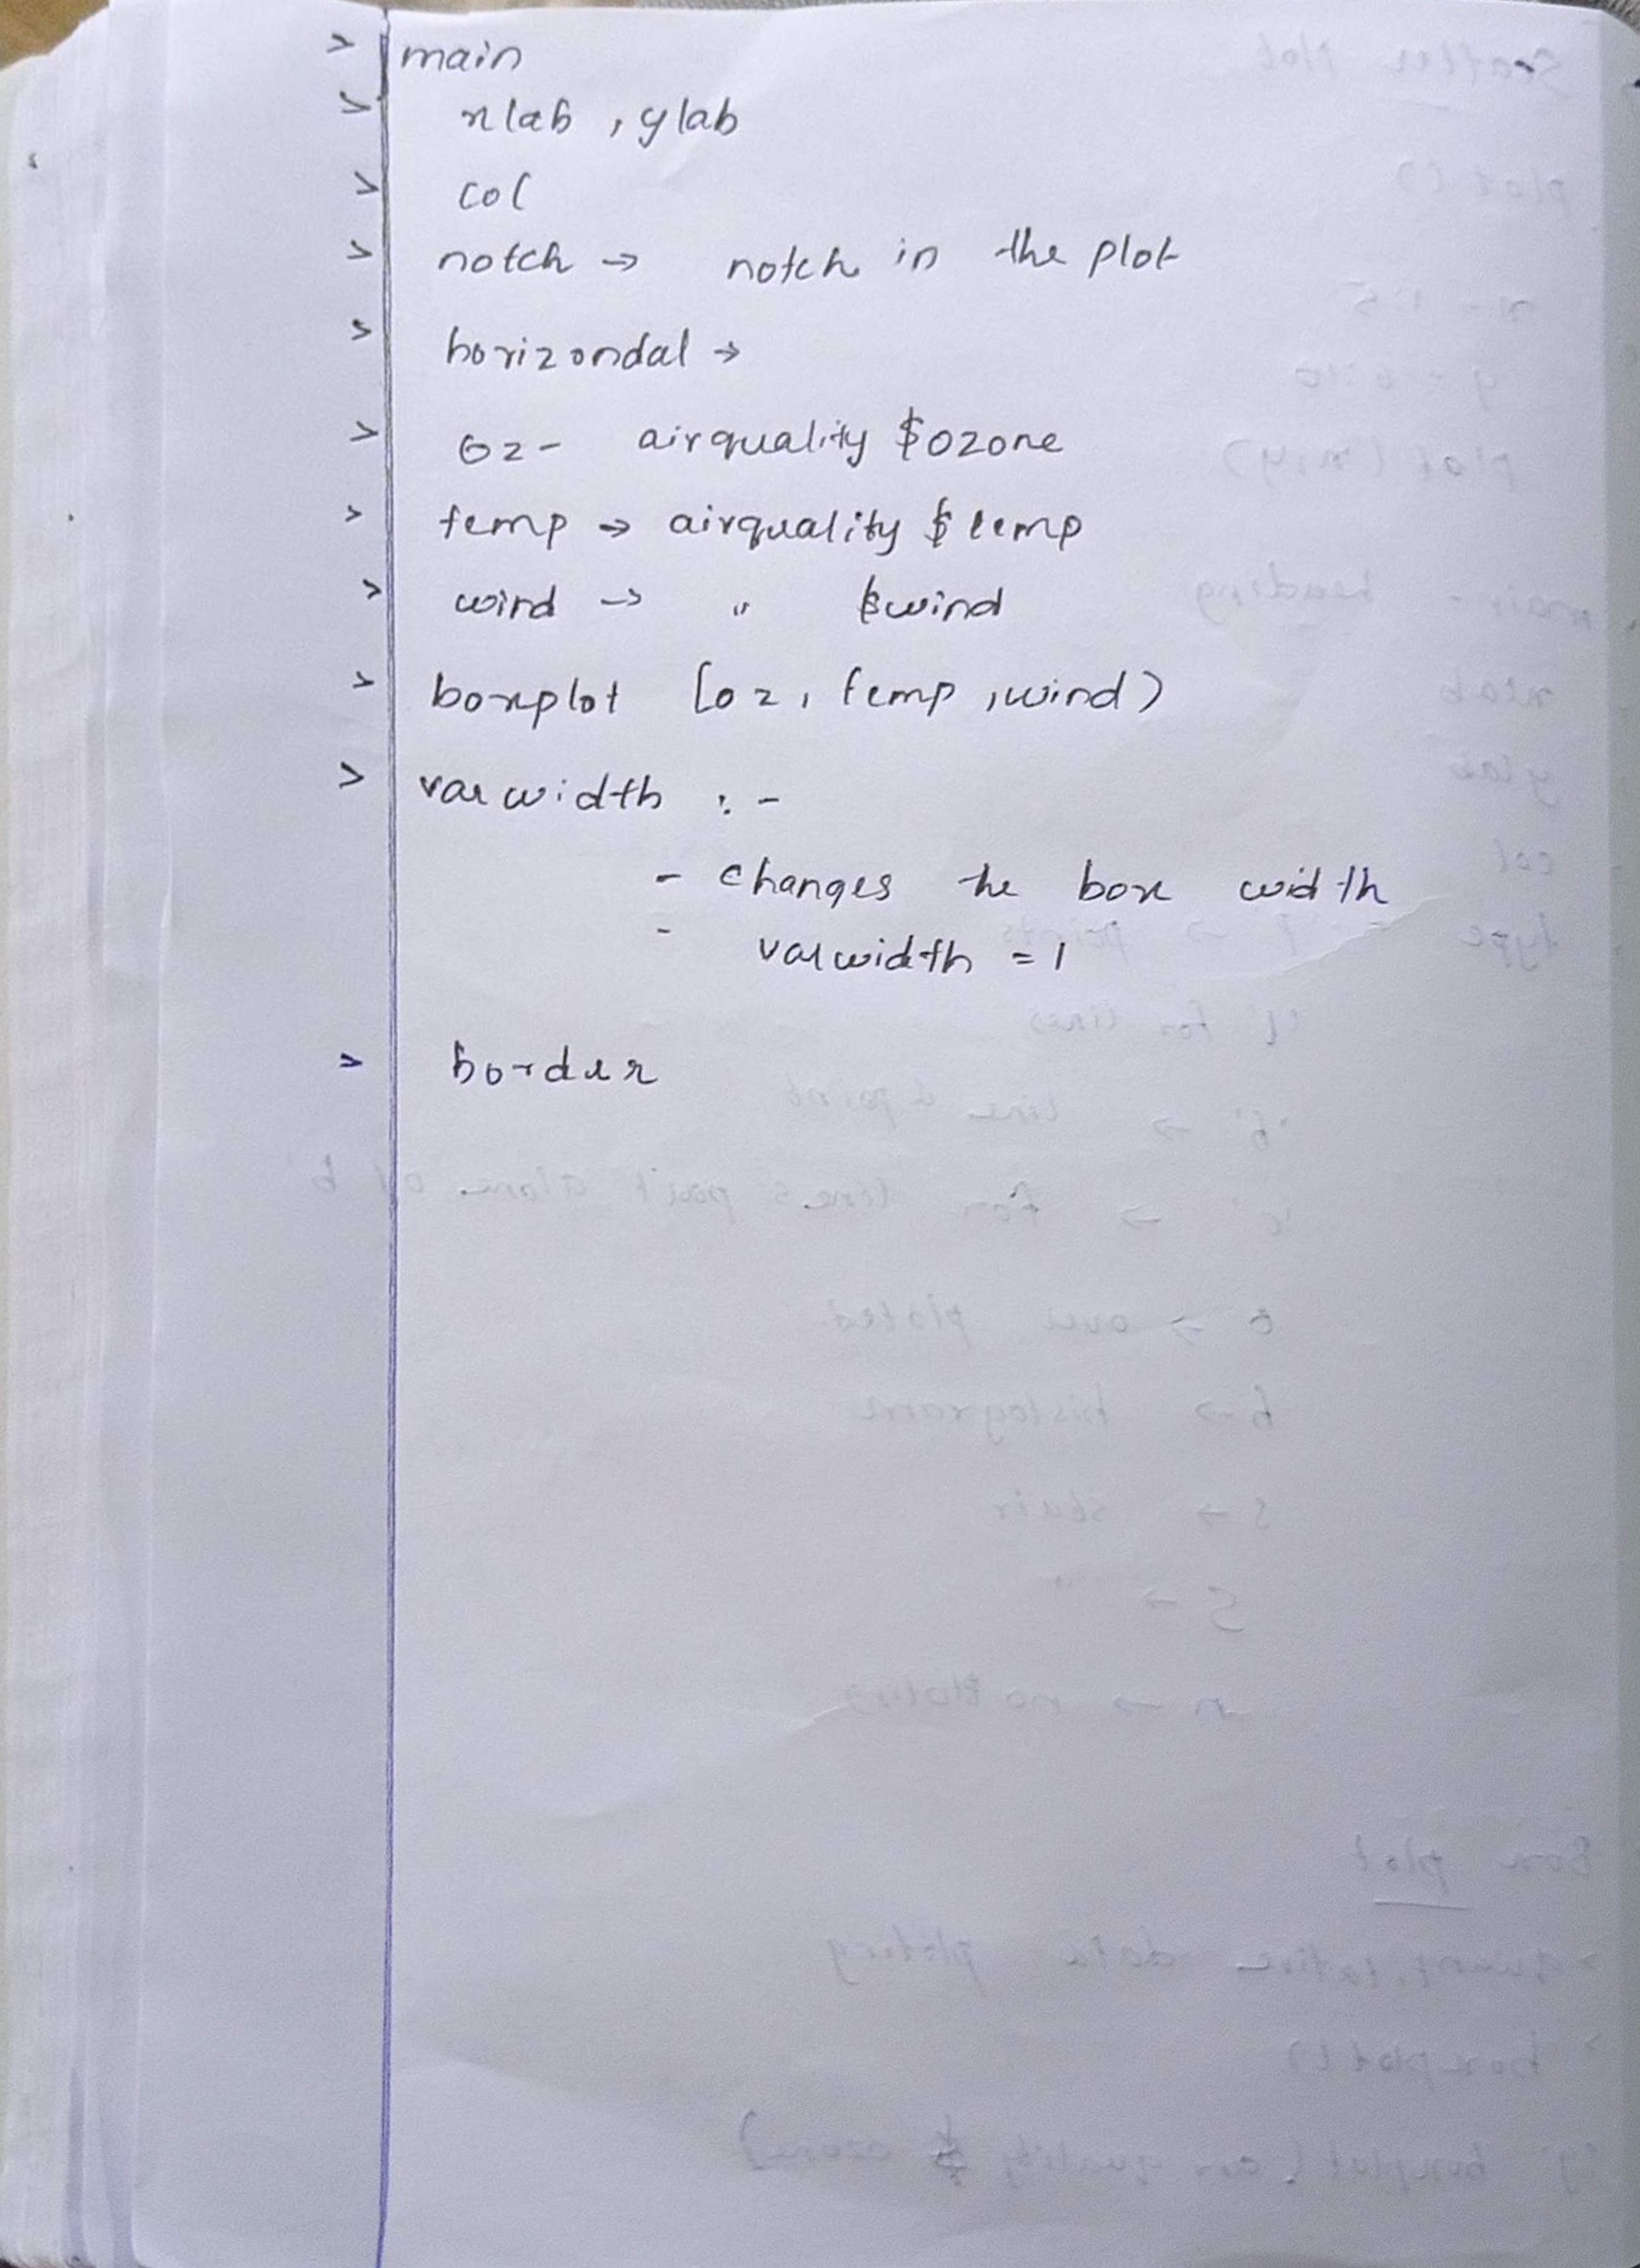 > main
> xlab , ylab
> col
> notch → notch in the plot
> horizondal →
> oz - airquality $ozone
> temp → airquality $temp
> wind → " $wind
> boxplot (oz, temp, wind)
> varwidth : -
- changes the box width
- varwidth = 1
> border